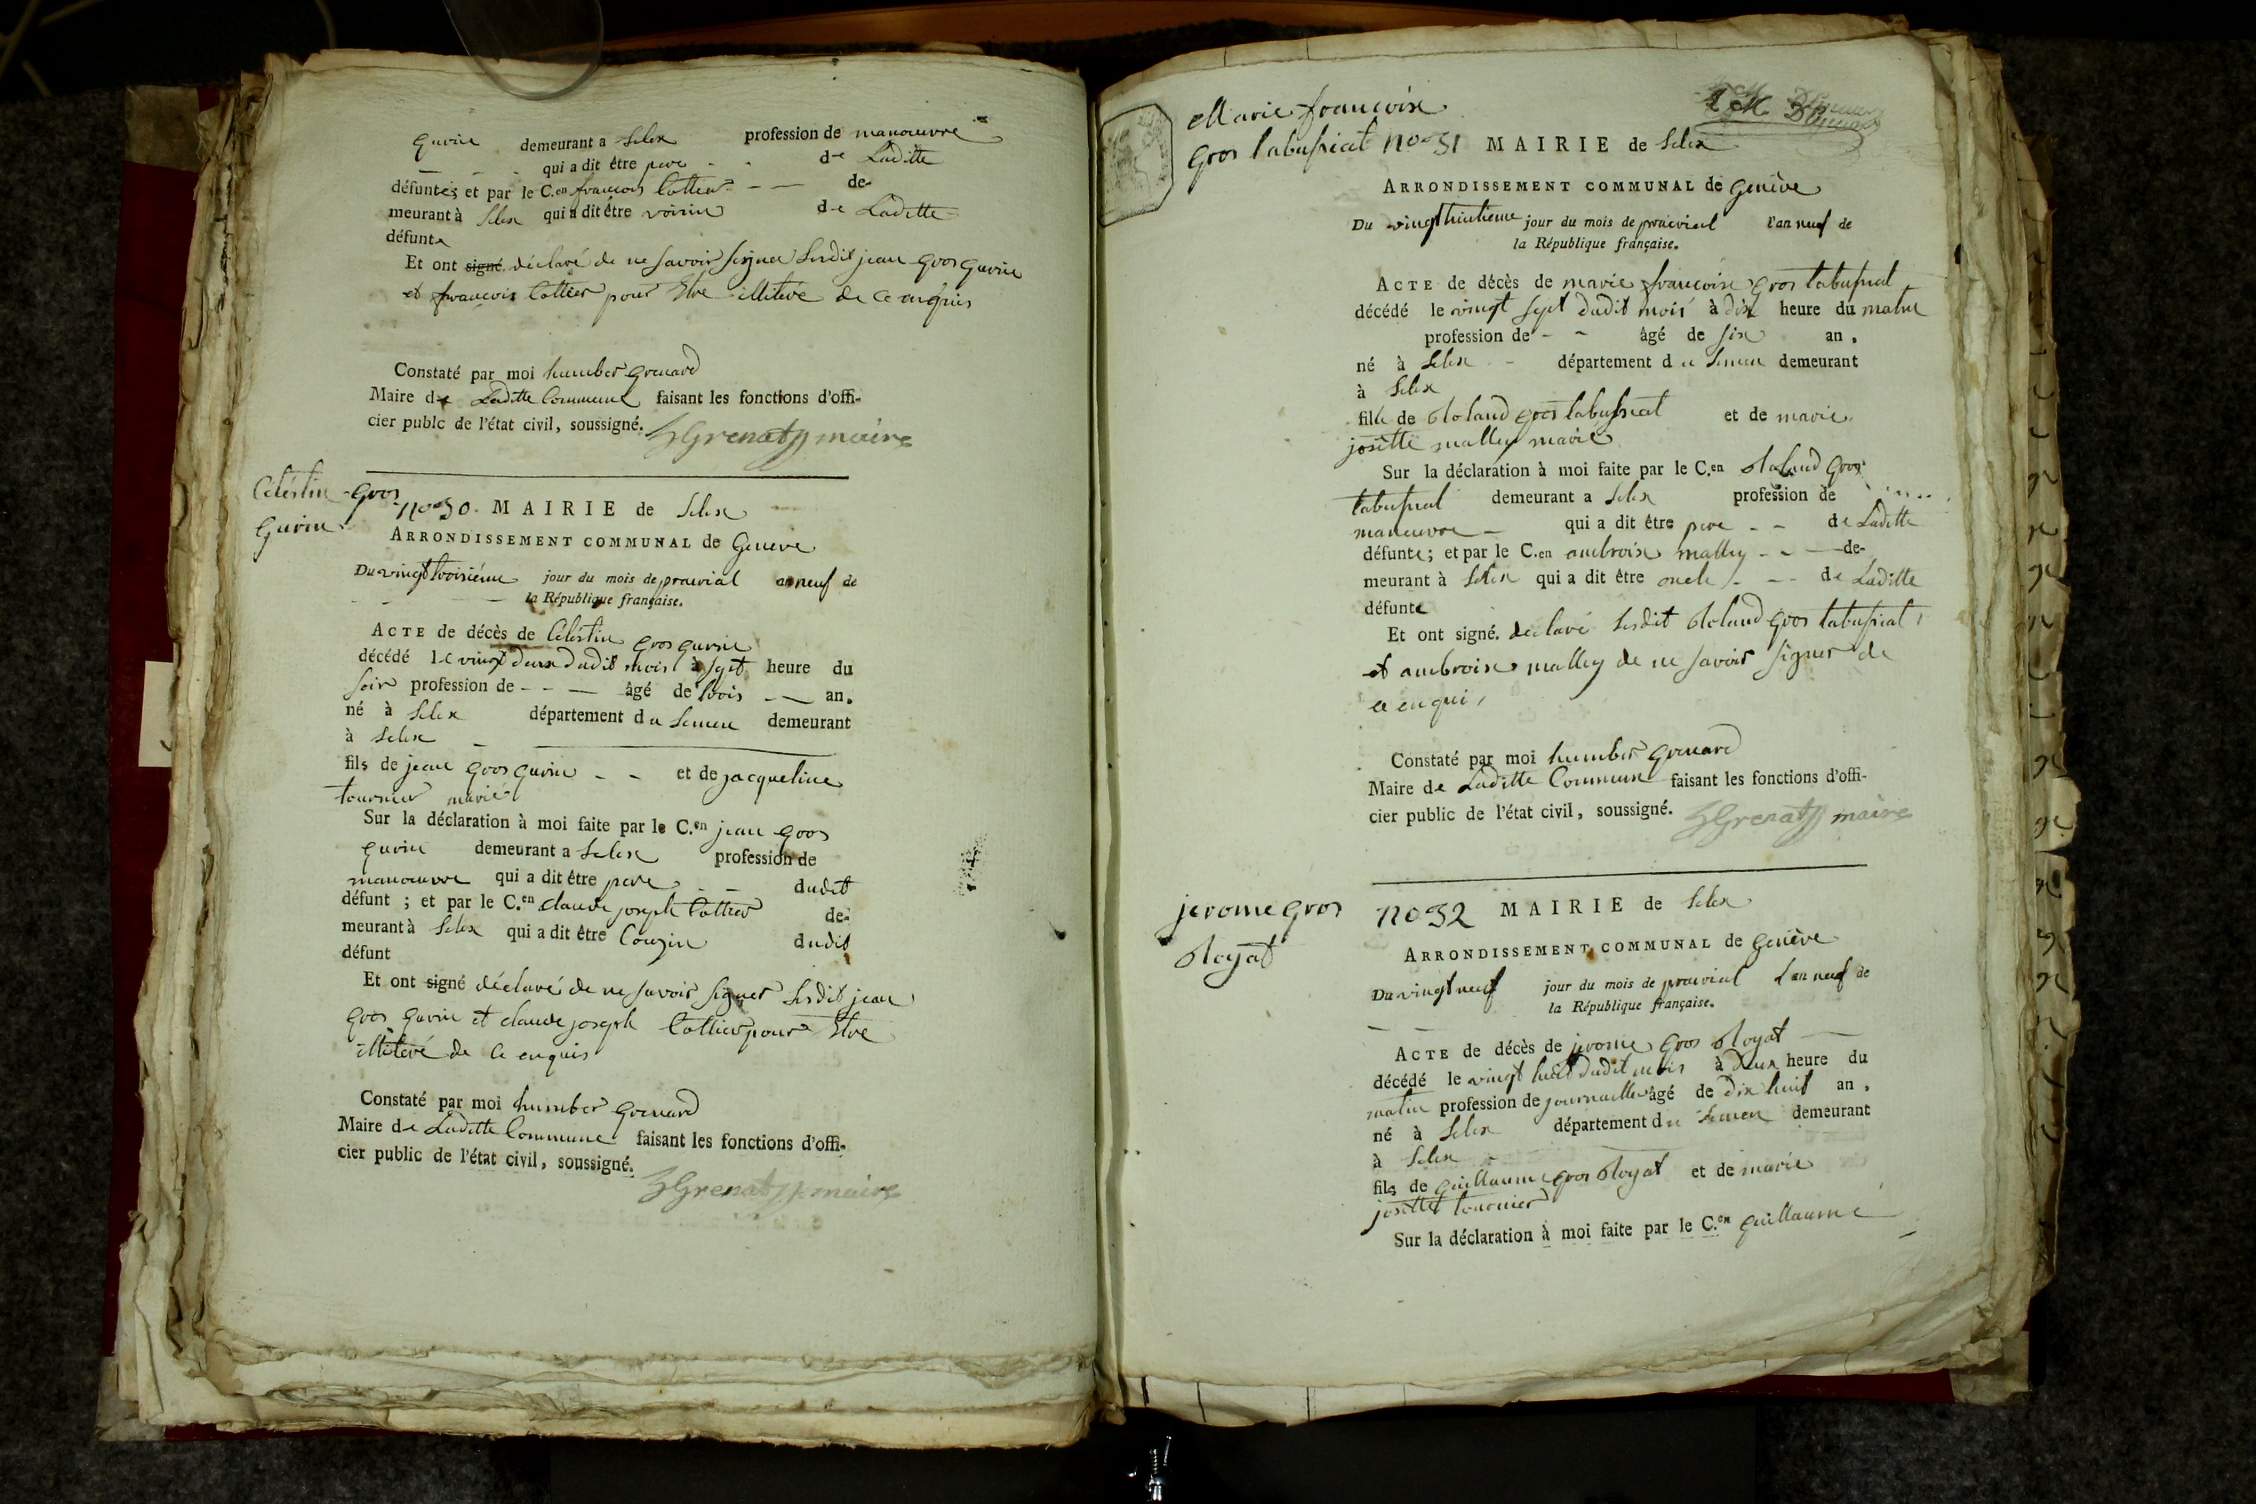 gurin demeurant a Selex profession de manoeuvre
qui a dit être pere de Laditte
défunte; et par le C.en francois Cottier de-
meurant à Selex qui a dit être voisin de Laditte
défunte
Et ont signé déclaré de ne savoir signer Lesdit jean gros gurin
et francois Cottier pour Etre illiteré de ce enquis
Constaté par moi humber Grenard
Maire de Laditte Commune faisant les fonctions d'offi-
cier publc de l'état civil, soussigné. hGrenat maire
Céléstin gros
gurin
no 30. MAIRIE de Selex
ARRONDISSEMENT COMMUNAL de Geneve
Du vingt troisiéme jour du mois de prairial an neuf de
la République française.
ACTE de décès de Céléstin gros gurin
décédé le vingt deux dudit mois à sept heure du
soir profession de - - — âgé de trois — an.
né à Selex département du Leman demeurant
à Selex
fils de jean gros gurin - - et de jacqueline
tournier marié
Sur la déclaration à moi faite par le C.en jean gros
gurin demeurant a Selex profession de
manoeuvre qui a dit être pere dudit
défunt ; et par le C.en claude joseph Cottier de-
meurant à Selex qui a dit être Couzin dudit
défunt
Et ont signé déclaré de ne savoir signer Lesdit jean
gros gurin et claude joseph Cottier pour Etre
illiteré de ce enquis
Constaté par moi humber Grenard
Maire de Laditte Commune faisant les fonctions d'offi-
cier public de l'état civil, soussigné.
hGrenat maire
Marie francoise
gros tabusrat no 31 MAIRIE de Selex
ARRONDISSEMENT COMMUNAL de Genève
Du vingt huitieme jour du mois de prairial l'an neuf de
la République française.
ACTE de décès de marie francoise gros tabusrat
décédé le vingt sept dudit mois à dix heure du matin
profession de - - âgé de six an.
né à Selex - département du Leman demeurant
à Selex
fille de Roland gros tabusrat et de marie
josette malley marié
Sur la déclaration à moi faite par le C.en Roland gros
tabusrat demeurant a Selex profession de
manoeuvre - qui a dit être pere - - de Laditte
défunte; et par le C.en ambroise malley - - — de-
meurant à Selex qui a dit être oncle - - - de Laditte
défunte
Et ont signé. declaré Lesdit Roland gros tabusrat,
et ambroise malley de ne savoir signer de
ce enqui,
Constaté par moi humber Grenard
Maire de Laditte Commune faisant les fonctions d'offi-
cier public de l'état civil, soussigné. hGrenat maire
jerome gros
Royat
no 32 MAIRIE de Selex
ARRONDISSEMENT COMMUNAL de Genève
Du vingt neuf jour du mois de prairial L'an neuf de
la République française.
ACTE de décès de jerome gros Royat
décédé le vingt huit dudit mois à deux heure du
matin profession de journaillier âgé de dix huit an.
né à Selex département du Leman demeurant
à Selex
fils de guillaume gros Royat et de marie
josette tournier
Sur la déclaration à moi faite par le C.en guillaume